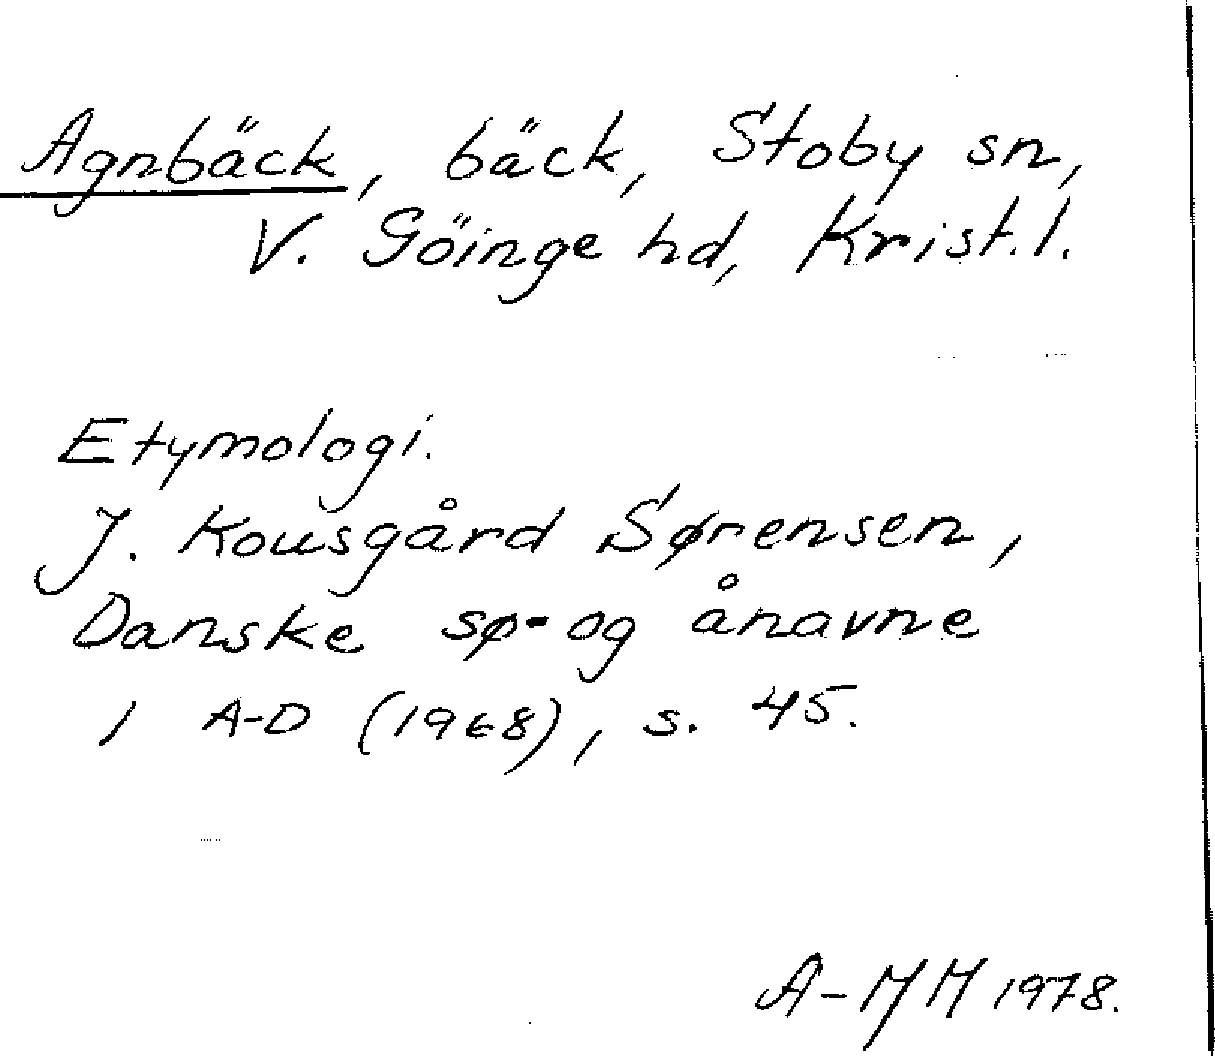 Agnbäck, bäck, Stoby sn,
V. Göinge hd, Krist. l.
Etymologi.
J. Kousgård Sørensen,
Danske sø- og ånavne
1 A-D (1968), s. 45.
A-MH 1978.